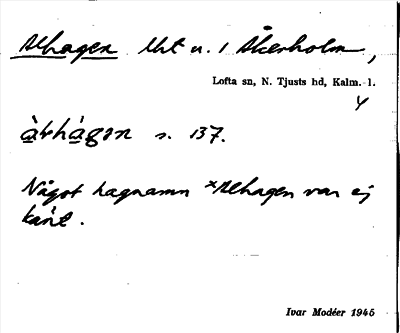 Alhagen lht u. 1 Åkerholm,
Lofta sn, N. Tjusts hd, Kalm. l.
4
s. 137.
Något hagnamn *Alhagen var ej
känt.
Ivar Modéer 1945